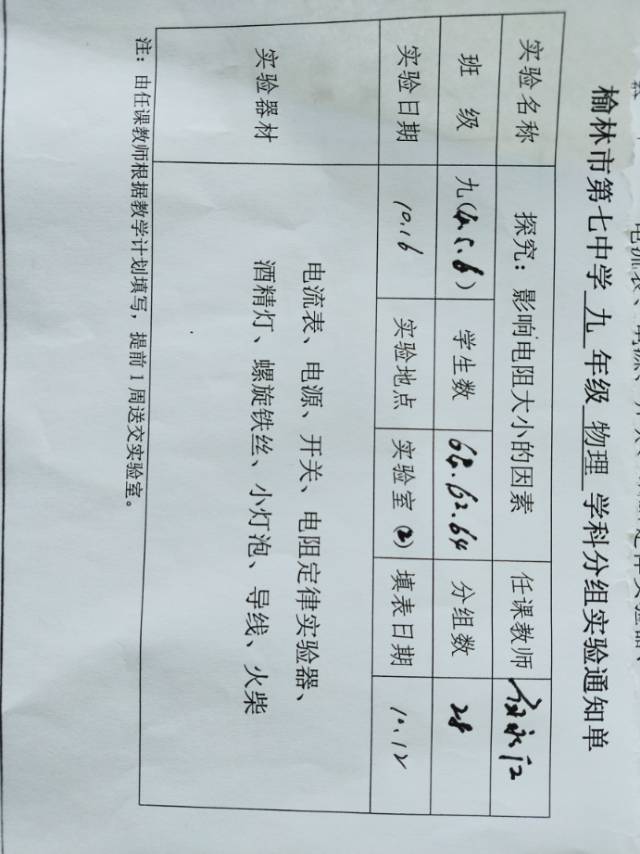 榆林市第七中学 九 年级 物理 学科分组实验通知单
实验名称 探究：影响电阻大小的因素 任课教师
班 级 九（4.5.6） 学生数 64.62.64 分组数 28
实验日期 10.16 实验地点 实验室（2） 填表日期 10.12
实验器材
电流表、电源、开关、电阻定律实验器、
酒精灯、螺旋铁丝、小灯泡、导线、火柴
注：由任课教师根据教学计划填写，提前1周送交实验室。